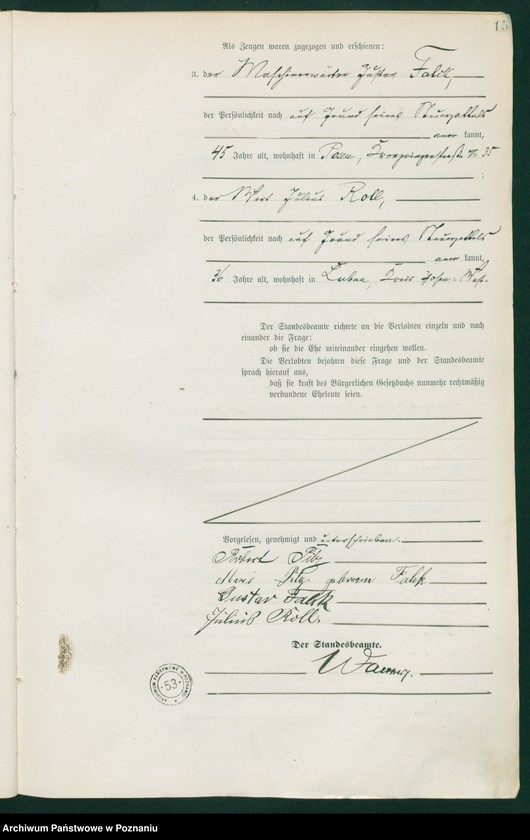 15
Als Zeugen waren zugezogen und erschienen:
3. der Maschinenwärter Gustav Falk,
der Persönlichkeit nach auf Grund seines Steuerzettels
anerkannt,
45 Jahre alt, wohnhaft in Posen, Kronprinzenstraße No 35
;
4. der Wirt Julius Roll,
der Persönlichkeit nach auf Grund seines Steuerzettels
anerkannt,
36 Jahre alt, wohnhaft in Luban, Kreis Posen-West.
Der Standesbeamte richtete an die Verlobten einzeln und nach
einander die Frage:
ob sie die Ehe miteinander eingehen wollen.
Die Verlobten bejahten diese Frage und der Standesbeamte
sprach hierauf aus,
daß sie kraft des Bürgerlichen Gesetzbuchs nunmehr rechtmäßig
verbundene Eheleute seien.
Vorgelesen, genehmigt und unterschrieben.
Robert Pilz
Pilz geboren Falk
Gustav Falk
Julius Roll.
Der Standesbeamte.
ARCHIWUM PAŃSTWOWE W POZNANIU
53
Archiwum Państwowe w Poznaniu